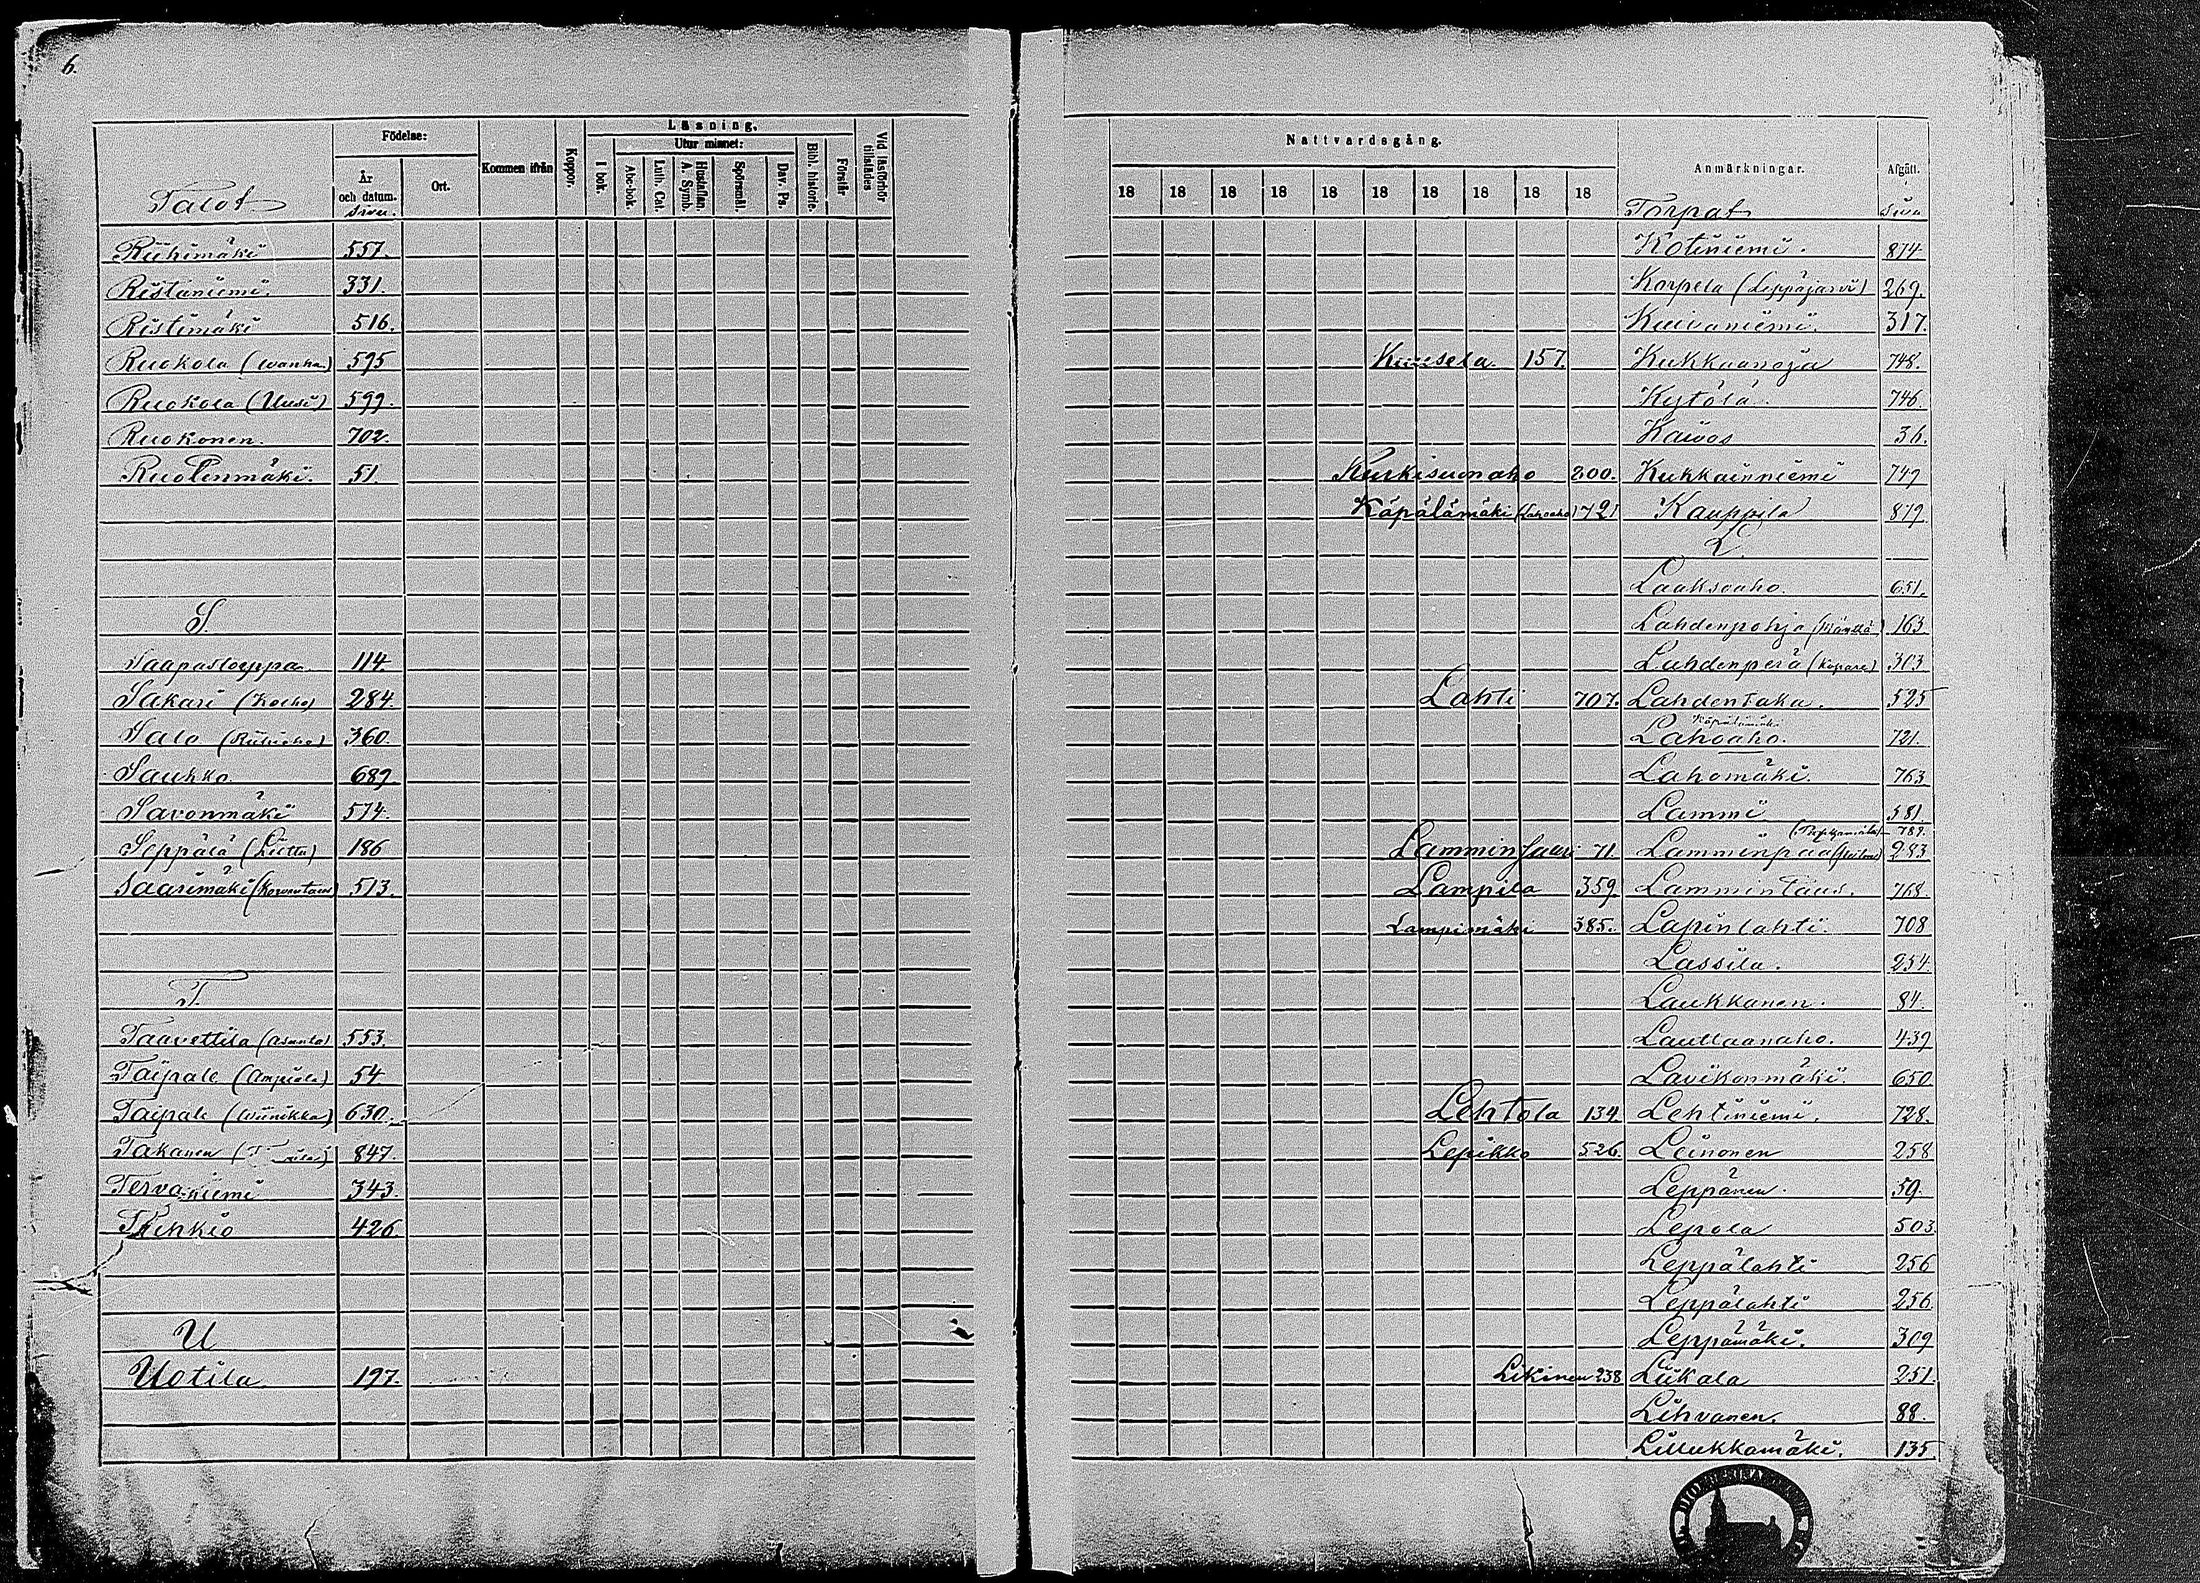 6.
Födelse:
År och datum.
Ort.
Kommen ifrån
Koppor.
Läsning.
I bok.
Utur minnet:
Abc-bok.
Luth. Cat.
Hustaflan. A. Symb.
Spörsmål.
Dav. Ps.
Bibl. historie.
Förstår
Vid läsförhör tillstädes
Talot
sivu.
Riihimäki 557.
Ristaniemi. 331.
Ristimäki 516.
Ruokola (wanha) 595
Ruokola (Uusi) 599.
Ruokonen. 702.
Ruotinmäki. 51.
S.
Saapasloyppa 114
Sakari (Koiho) 284.
Salo (Riihiaho) 360.
Saukko. 689
Savonmäki 574.
Seppälä (Liettu) 186
Saarimäki (Korventaus) 513.
T.
Taavettila (Asunta) 553.
Taipale (Ampiala) 54.
Taipale (Wiinikka) 630.
Takanen 847.
Tervaniemi 343.
Tiihkiö 426.
U
Uotila 197.
Nattvardsgång.
18 18 18 18 18 18 18 18 18 18
Anmärkningar.
Afgått.
Torpat
sivu
Kotiniemi. 874
Korpela (Leppäjärvi) 269.
Kuivaniemi. 317.
Kuusela. 157. Kukkaanoja 748.
Kytölä. 746.
Kaivos 36.
Kurkisuonaho 200. Kukkainniemi 749
Käpälämäki (Lahoaho) 721 Kauppila 879
L.
Laaksoaho. 651.
Lahdenpohja (Mänttä) 163
Lahdenperä (Kopare) 303
Lahti 707. Lahdentaka. 525
Käpälämäki
Lahoaho. 721.
Lahomäki. 763
Lammi 581.
789.
Lamminsaari 71. Lamminpää 283
Lampila 359 Lammintaus. 768.
Lampimäki 385. Lapinlahti. 708
Lassila. 254.
Laukkanen. 84.
Laullaanaho. 439
Lavikonmäki. 650.
Lehtola 134. Lehtiniemi. 728.
Lepikko 526. Leinonen 258
Leppänen. 59.
Lepola 503.
Leppälahti 256
Leppälahti 256
Leppämäki. 309
Likinen 238 Liikala 251.
Lihvanen. 88.
Lillukkamäki. 135